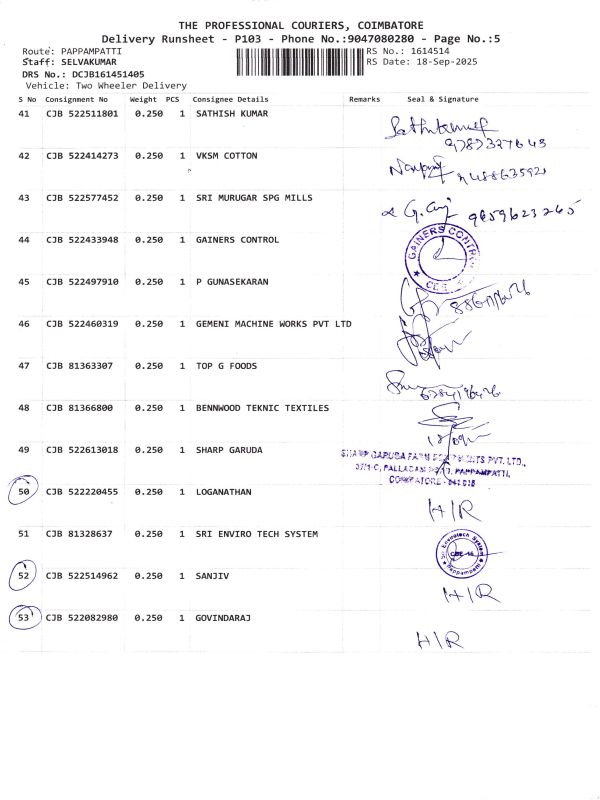 THE PROFESSIONAL COURIERS, COIMBATORE
Delivery Runsheet - P103 - Phone No.:9047080280 - Page No.:5
Route: PAPPAMPATTI
RS No.: 1614514
Staff: SELVAKUMAR
RS Date: 18-Sep-2025
DRS No.: DCJB161451405
Vehicle: Two Wheeler Delivery
S No Consignment No Weight PCS Consignee Details Remarks Seal & Signature
41 CJB 522511801 0.250 1 SATHISH KUMAR
42 CJB 522414273 0.250 1 VKSM COTTON
43 CJB 522577452 0.250 1 SRI MURUGAR SPG MILLS
9659623265
44 CJB 522433948 0.250 1 GAINERS CONTROL
GAINERS CONTROL
45 CJB 522497910 0.250 1 P GUNASEKARAN
46 CJB 522460319 0.250 1 GEMENI MACHINE WORKS PVT LTD
47 CJB 81363307 0.250 1 TOP G FOODS
48 CJB 81366800 0.250 1 BENNWOOD TEKNIC TEXTILES
49 CJB 522613018 0.250 1 SHARP GARUDA
SHARP GARUDA FARM PVT. LTD.,
37/1-C, PALLADAM PAPPAMPATTI,
COIMBATORE
50 CJB 522220455 0.250 1 LOGANATHAN
H/R
51 CJB 81328637 0.250 1 SRI ENVIRO TECH SYSTEM
Sri Envirotech System
CBE-16
Pappampatti
52 CJB 522514962 0.250 1 SANJIV
H/R
53 CJB 522082980 0.250 1 GOVINDARAJ
H/R